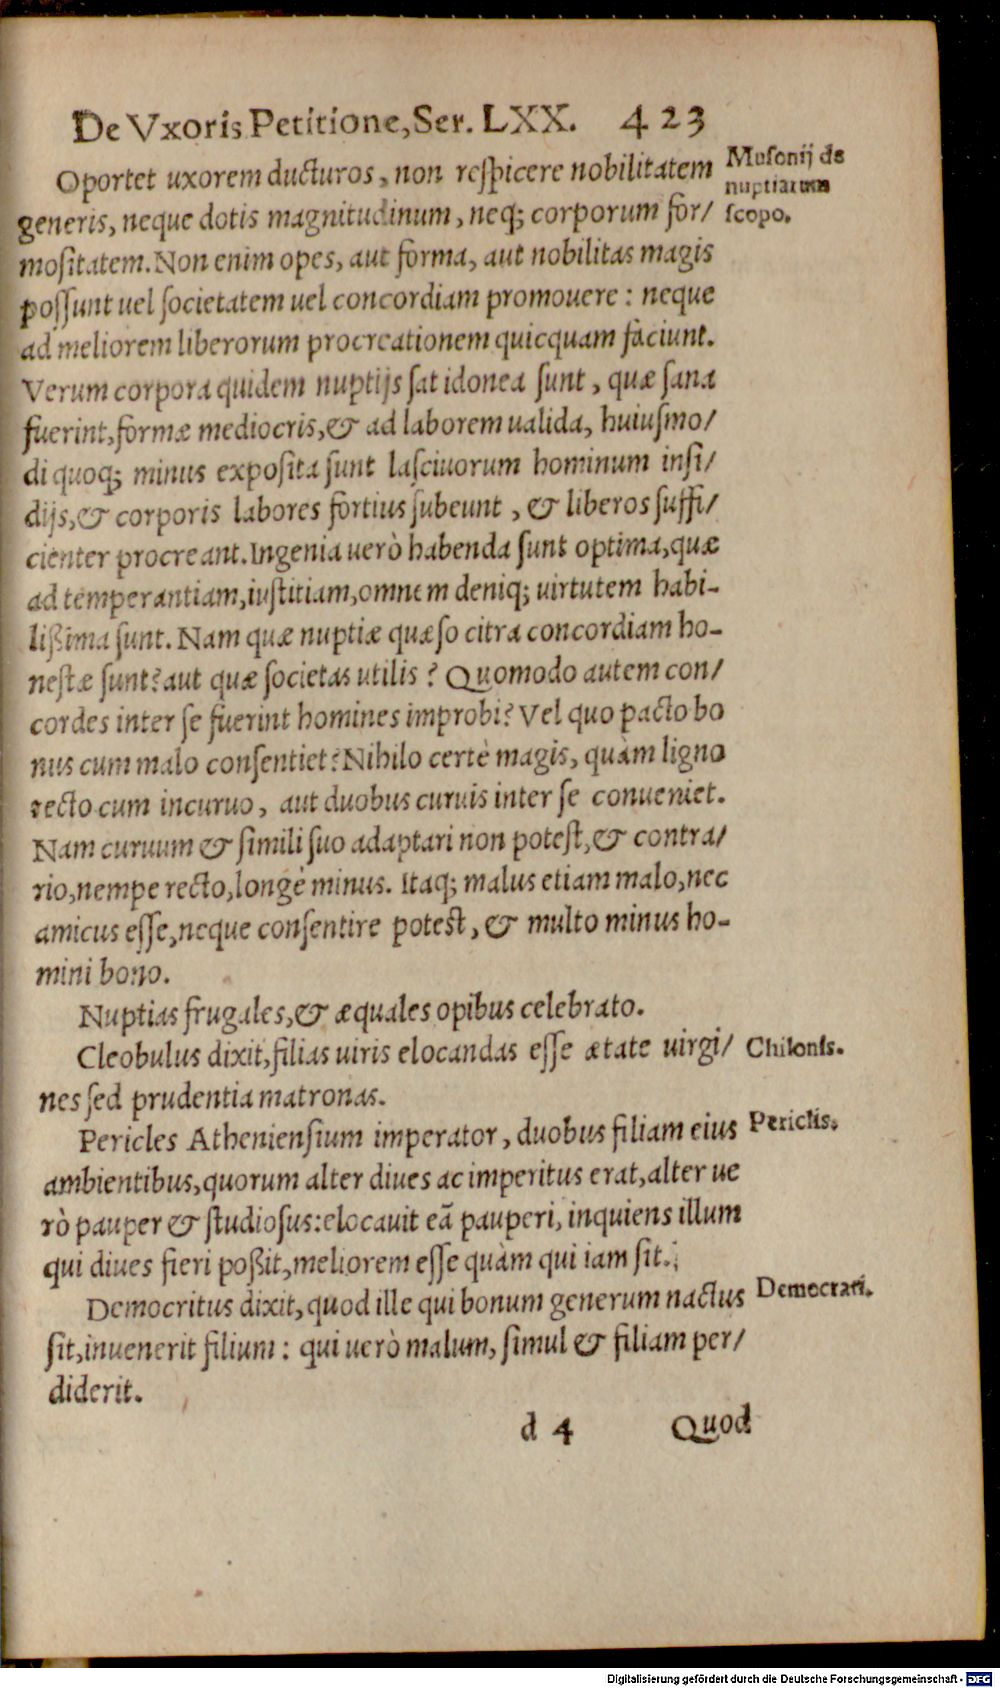 De Vxoris Petitione, Ser. LXX. 423
Oportet uxorem ducturos, non respicere nobilitatem
Musonij de
nuptiarum
scopo.
generis, neque dotis magnitudinum, neq; corporum for/
mositatem. Non enim opes, aut forma, aut nobilitas magis
possunt uel societatem uel concordiam promouere: neque
ad meliorem liberorum procreationem quicquam faciunt.
Verum corpora quidem nuptijs sat idonea sunt, quæ sana
fuerint, formæ mediocris, & ad laborem ualida, huiusmo/
di quoq; minus exposita sunt lasciuorum hominum insi/
dijs, & corporis labores fortius subeunt, & liberos suffi/
cienter procreant. Ingenia uerò habenda sunt optima, quæ
ad temperantiam, iustitiam, omnem deniq; uirtutem habi-
lißima sunt. Nam quæ nuptiæ quæso citra concordiam ho-
nestæ sunt? aut quæ societas utilis? Quomodo autem con/
cordes inter se fuerint homines improbi? Vel quo pacto bo
nus cum malo consentiet? Nihilo certè magis, quàm ligno
recto cum incuruo, aut duobus curuis inter se conueniet.
Nam curuum & simili suo adaptari non potest, & contra/
rio, nempe recto, longè minus. Itaq; malus etiam malo, nec
amicus esse, neque consentire potest, & multo minus ho-
mini bono.
Nuptias frugales, & æquales opibus celebrato.
Cleobulus dixit, filias uiris elocandas esse ætate uirgi/
Chilonis.
nes sed prudentia matronas.
Pericles Atheniensium imperator, duobus filiam eius
Periclis.
ambientibus, quorum alter diues ac imperitus erat, alter ue
rò pauper & studiosus: elocauit eā pauperi, inquiens illum
qui diues fieri poßit, meliorem esse quàm qui iam sit.
Democritus dixit, quod ille qui bonum generum nactus
Democrati.
sit, inuenerit filium: qui uerò malum, simul & filiam per/
diderit.
d 4 Quod
Digitalisierung gefördert durch die Deutsche Forschungsgemeinschaft - DFG